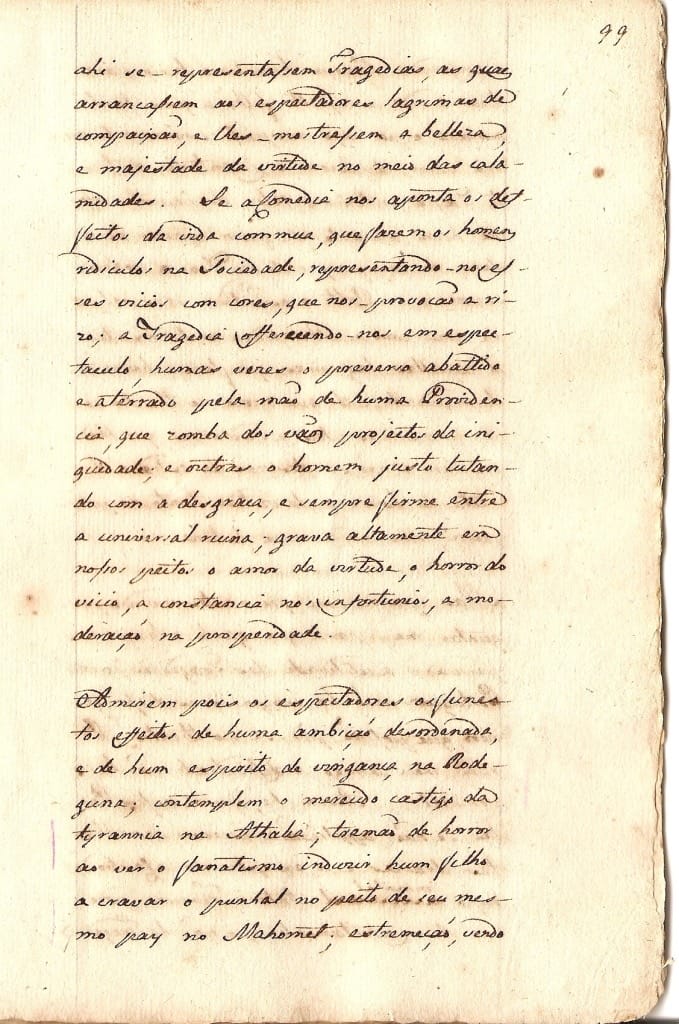 99
ahi se-representassem Tragedias, as quaes
arrancassem aos espectadores lagrimas de
compaixaõ, e lhes-mostrassem a belleza,
e majestade da virtude no meio das cala-
midades. Se a Comedia nos aponta os def-
feitos da vida commua, que fazem os homens
ridiculos na Sociedade, representando-nos es-
ses vicios com cores, que nos-provocaõ a ri-
zo; a Tragedia offerecendo-nos em espec-
taculo, humas vezes o preverso abattido
e aterrado pela maõ de huma Providen-
cia, que zomba dos vaõs projectos da ini-
quidade; e outras o homem justo lutan-
do com a desgraça, e sempre firme entre
a universal ruina; grava altamente em
nossos peitos o amor da virtude, o horror do
vicio, a constancia nos infortunios, a mo-
deraçaõ na prosperidade.
Admirem pois os espectadores os funes-
tos effeitos de huma ambiçaõ desordenada,
e de hum espirito de vingança, na Rode-
guna; contemplem o merecido castigo da
tyrannia na Athalia; tremaõ de horror
ao ver o fanatismo induzir hum filho
a cravar o punhal no peito de seu mes-
mo pay no Mahomet; estremeçaõ, vendo